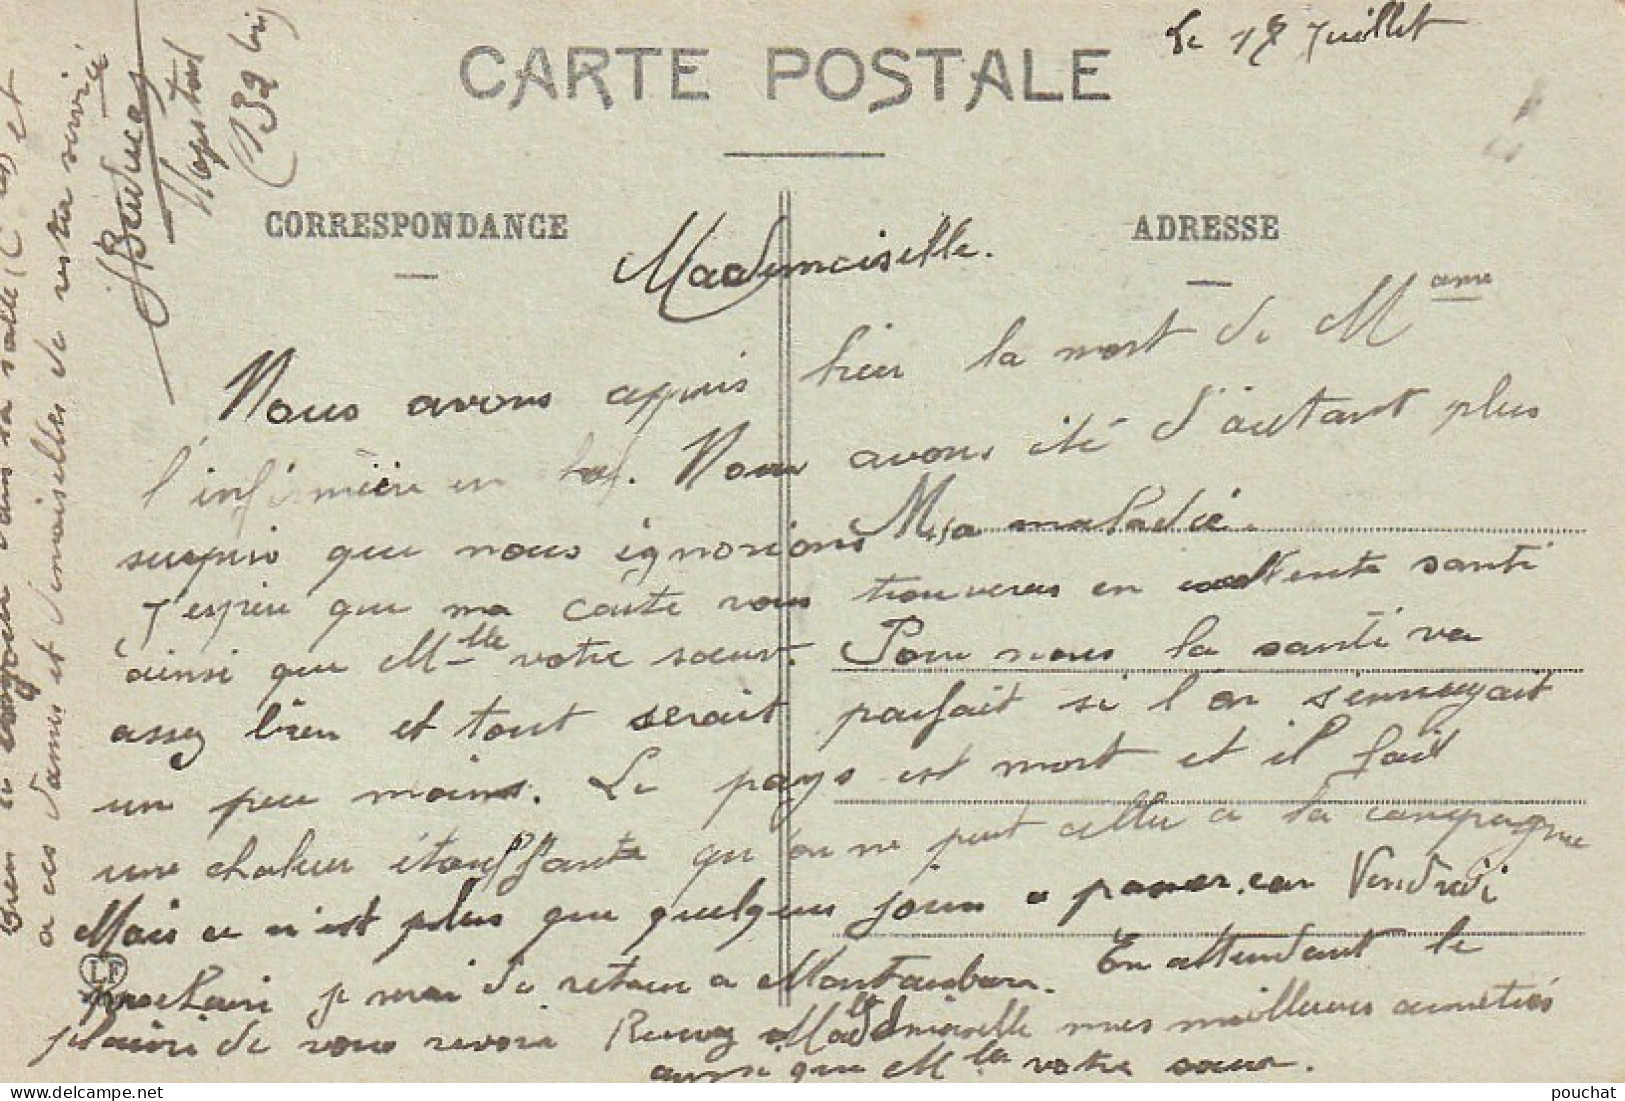 Le 17 Juillet
CARTE POSTALE
CORRESPONDANCE
ADRESSE
Mademoiselle.
Nous avons appris hier la mort de Mame
l'infirmière en . Nous avons été d'autant plus
surpris que nous ignorions sa maladie.
J'espère que ma carte vous trouveras en excellente santé
ainsi que Mlle votre sœur. Pour nous la santé va
assez bien et tout serait parfait si l'on s'ennuyait
un peu moins. Le pays est mort et il fait
une chaleur étouffante qu'on ne peut aller a la campagne
Mais ce n'est plus que quelques jours a passer, car Vendredi
prochain je serai de retour a Montauban. En attendant le
plaisir de vous revoir Recevez Mademoiselle mes meilleures amitiés
ainsi que Mlle votre sœur.
Bien le bonjour dans la salle (C et
a ces dames et demoiselles de votre service
Hopital
(132 bis)
LF
pouchat